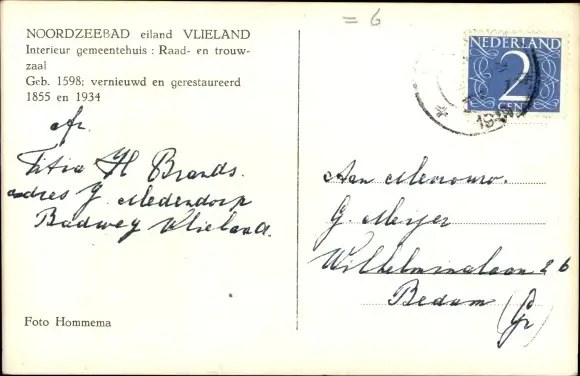 = 6
NOORDZEEBAD eiland VLIELAND
Interieur gemeentehuis : Raad- en trouw-
zaal
Geb. 1598; vernieuwd en gerestaureerd
1855 en 1934
NEDERLAND
2
CENT
Afz.
H Brands.
adres G. Medendorp
Badweg Vlieland.
Aan Mevrouw.
G. Meijer
Wilhelminalaan 26
Bedum
(Gr)
Foto Hommema